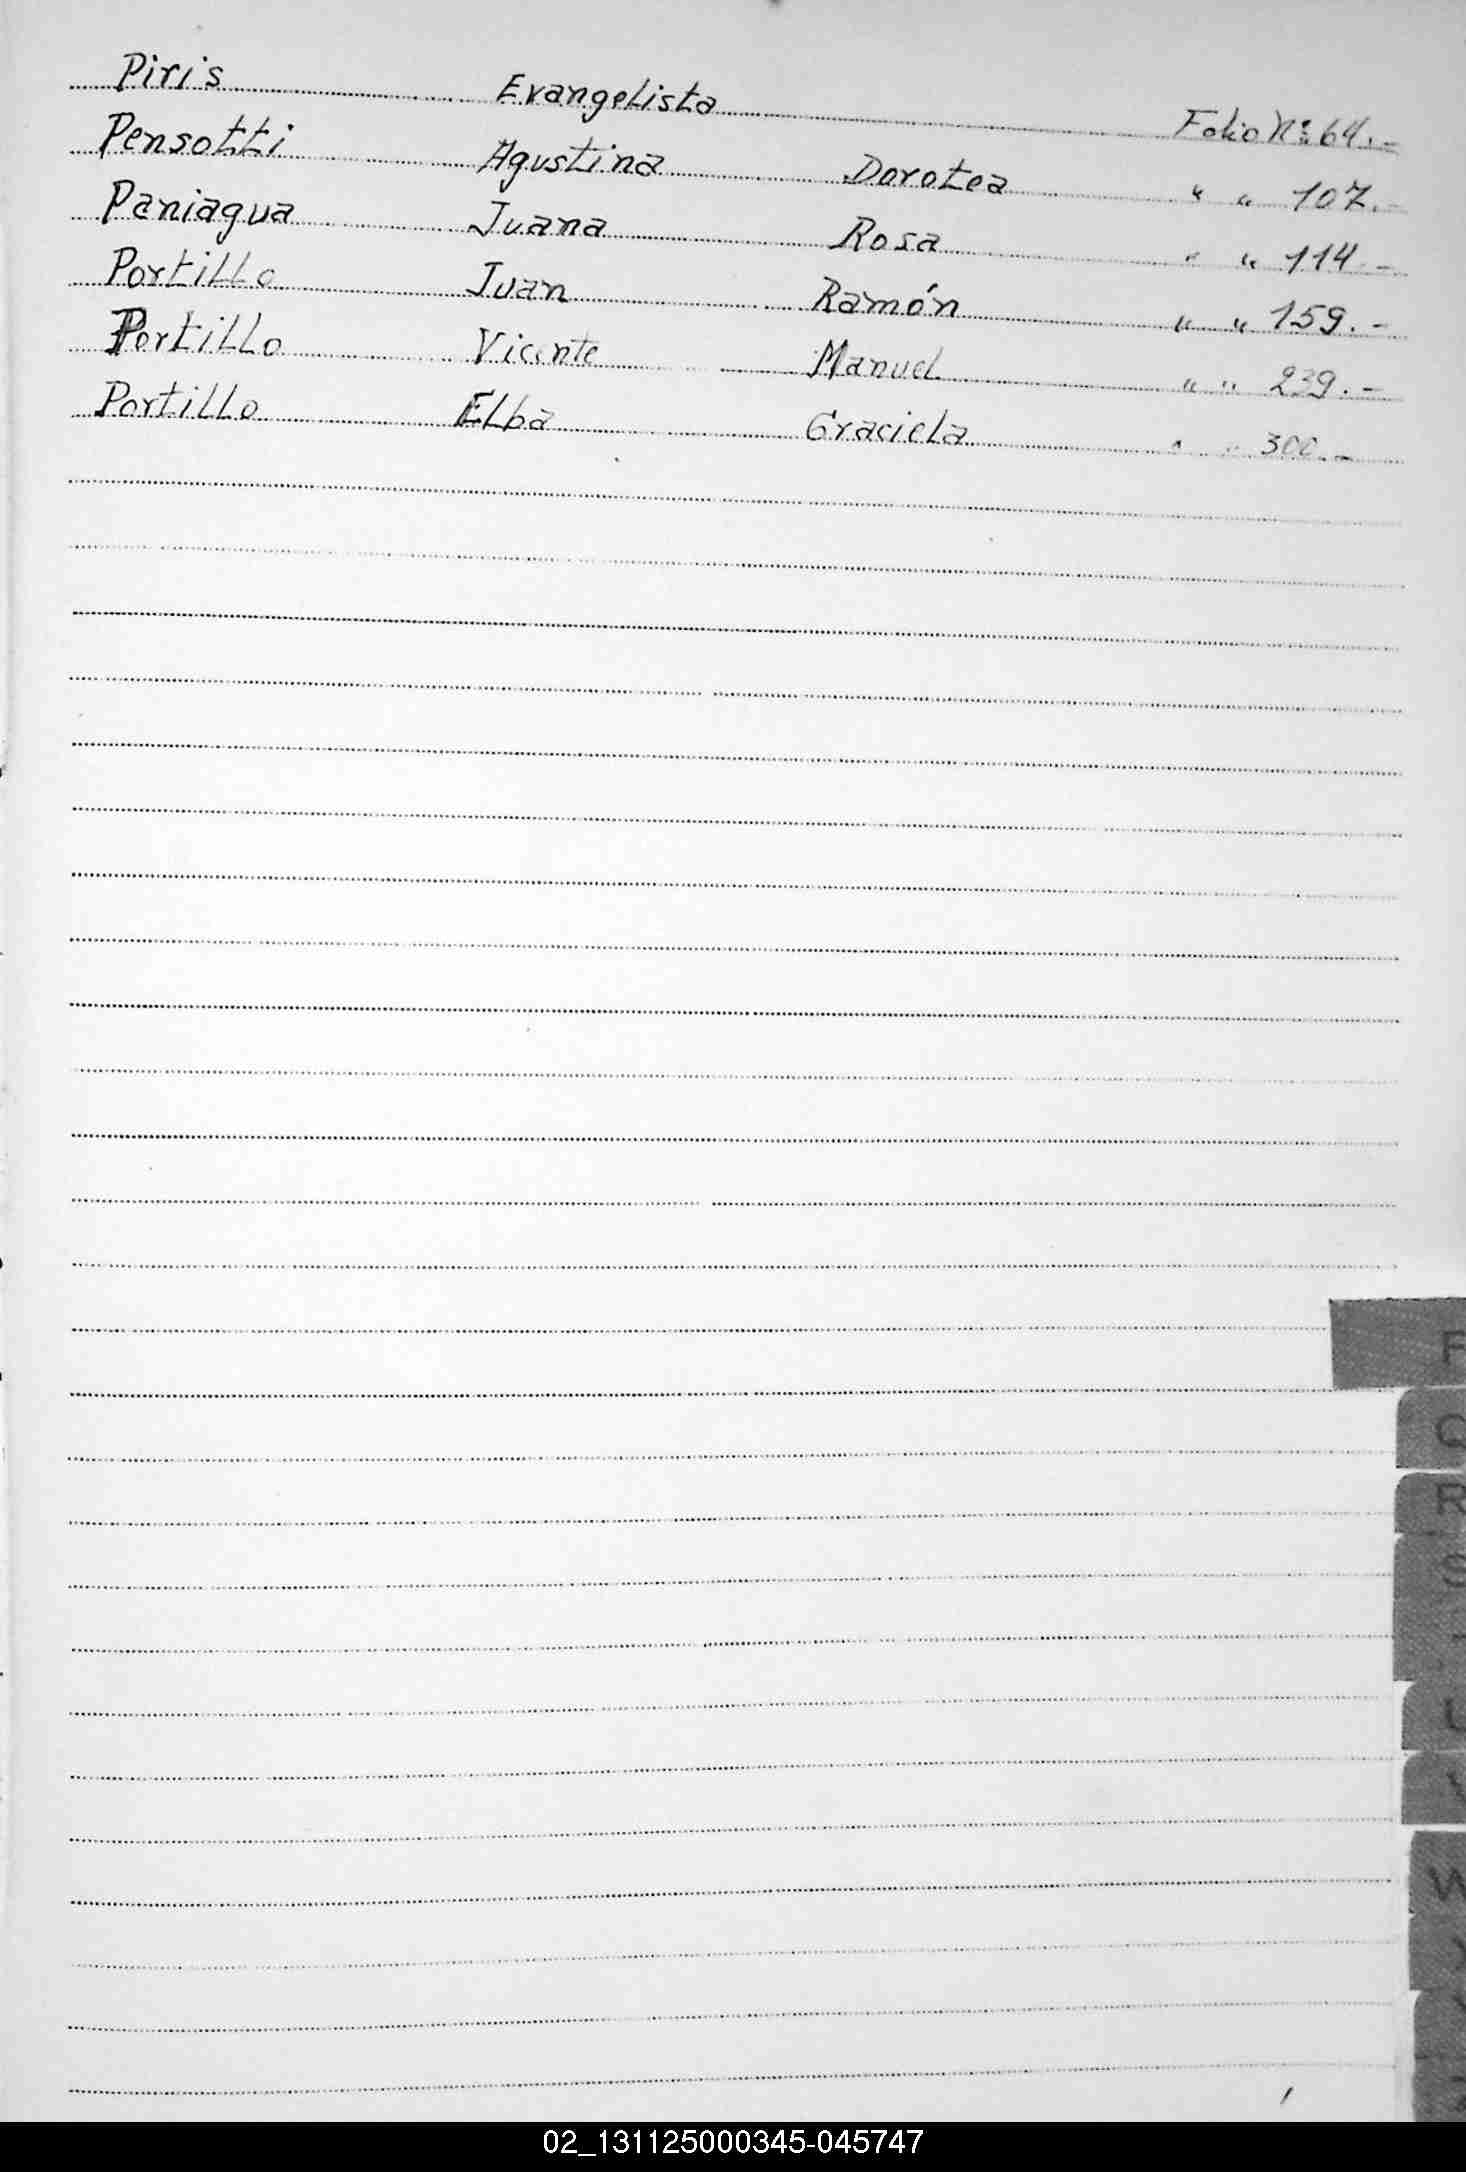 Piris Evangelista Folio Nº 64.-
Pensotti Agustina Dorotea " " 107.-
Paniagua Juana Rosa " " 114.-
Portillo Juan Ramón " " 159.-
Portillo Vicente Manuel " " 239.-
Portillo Elba Graciela " " 300.-
R
S
W
02_131125000345-045747